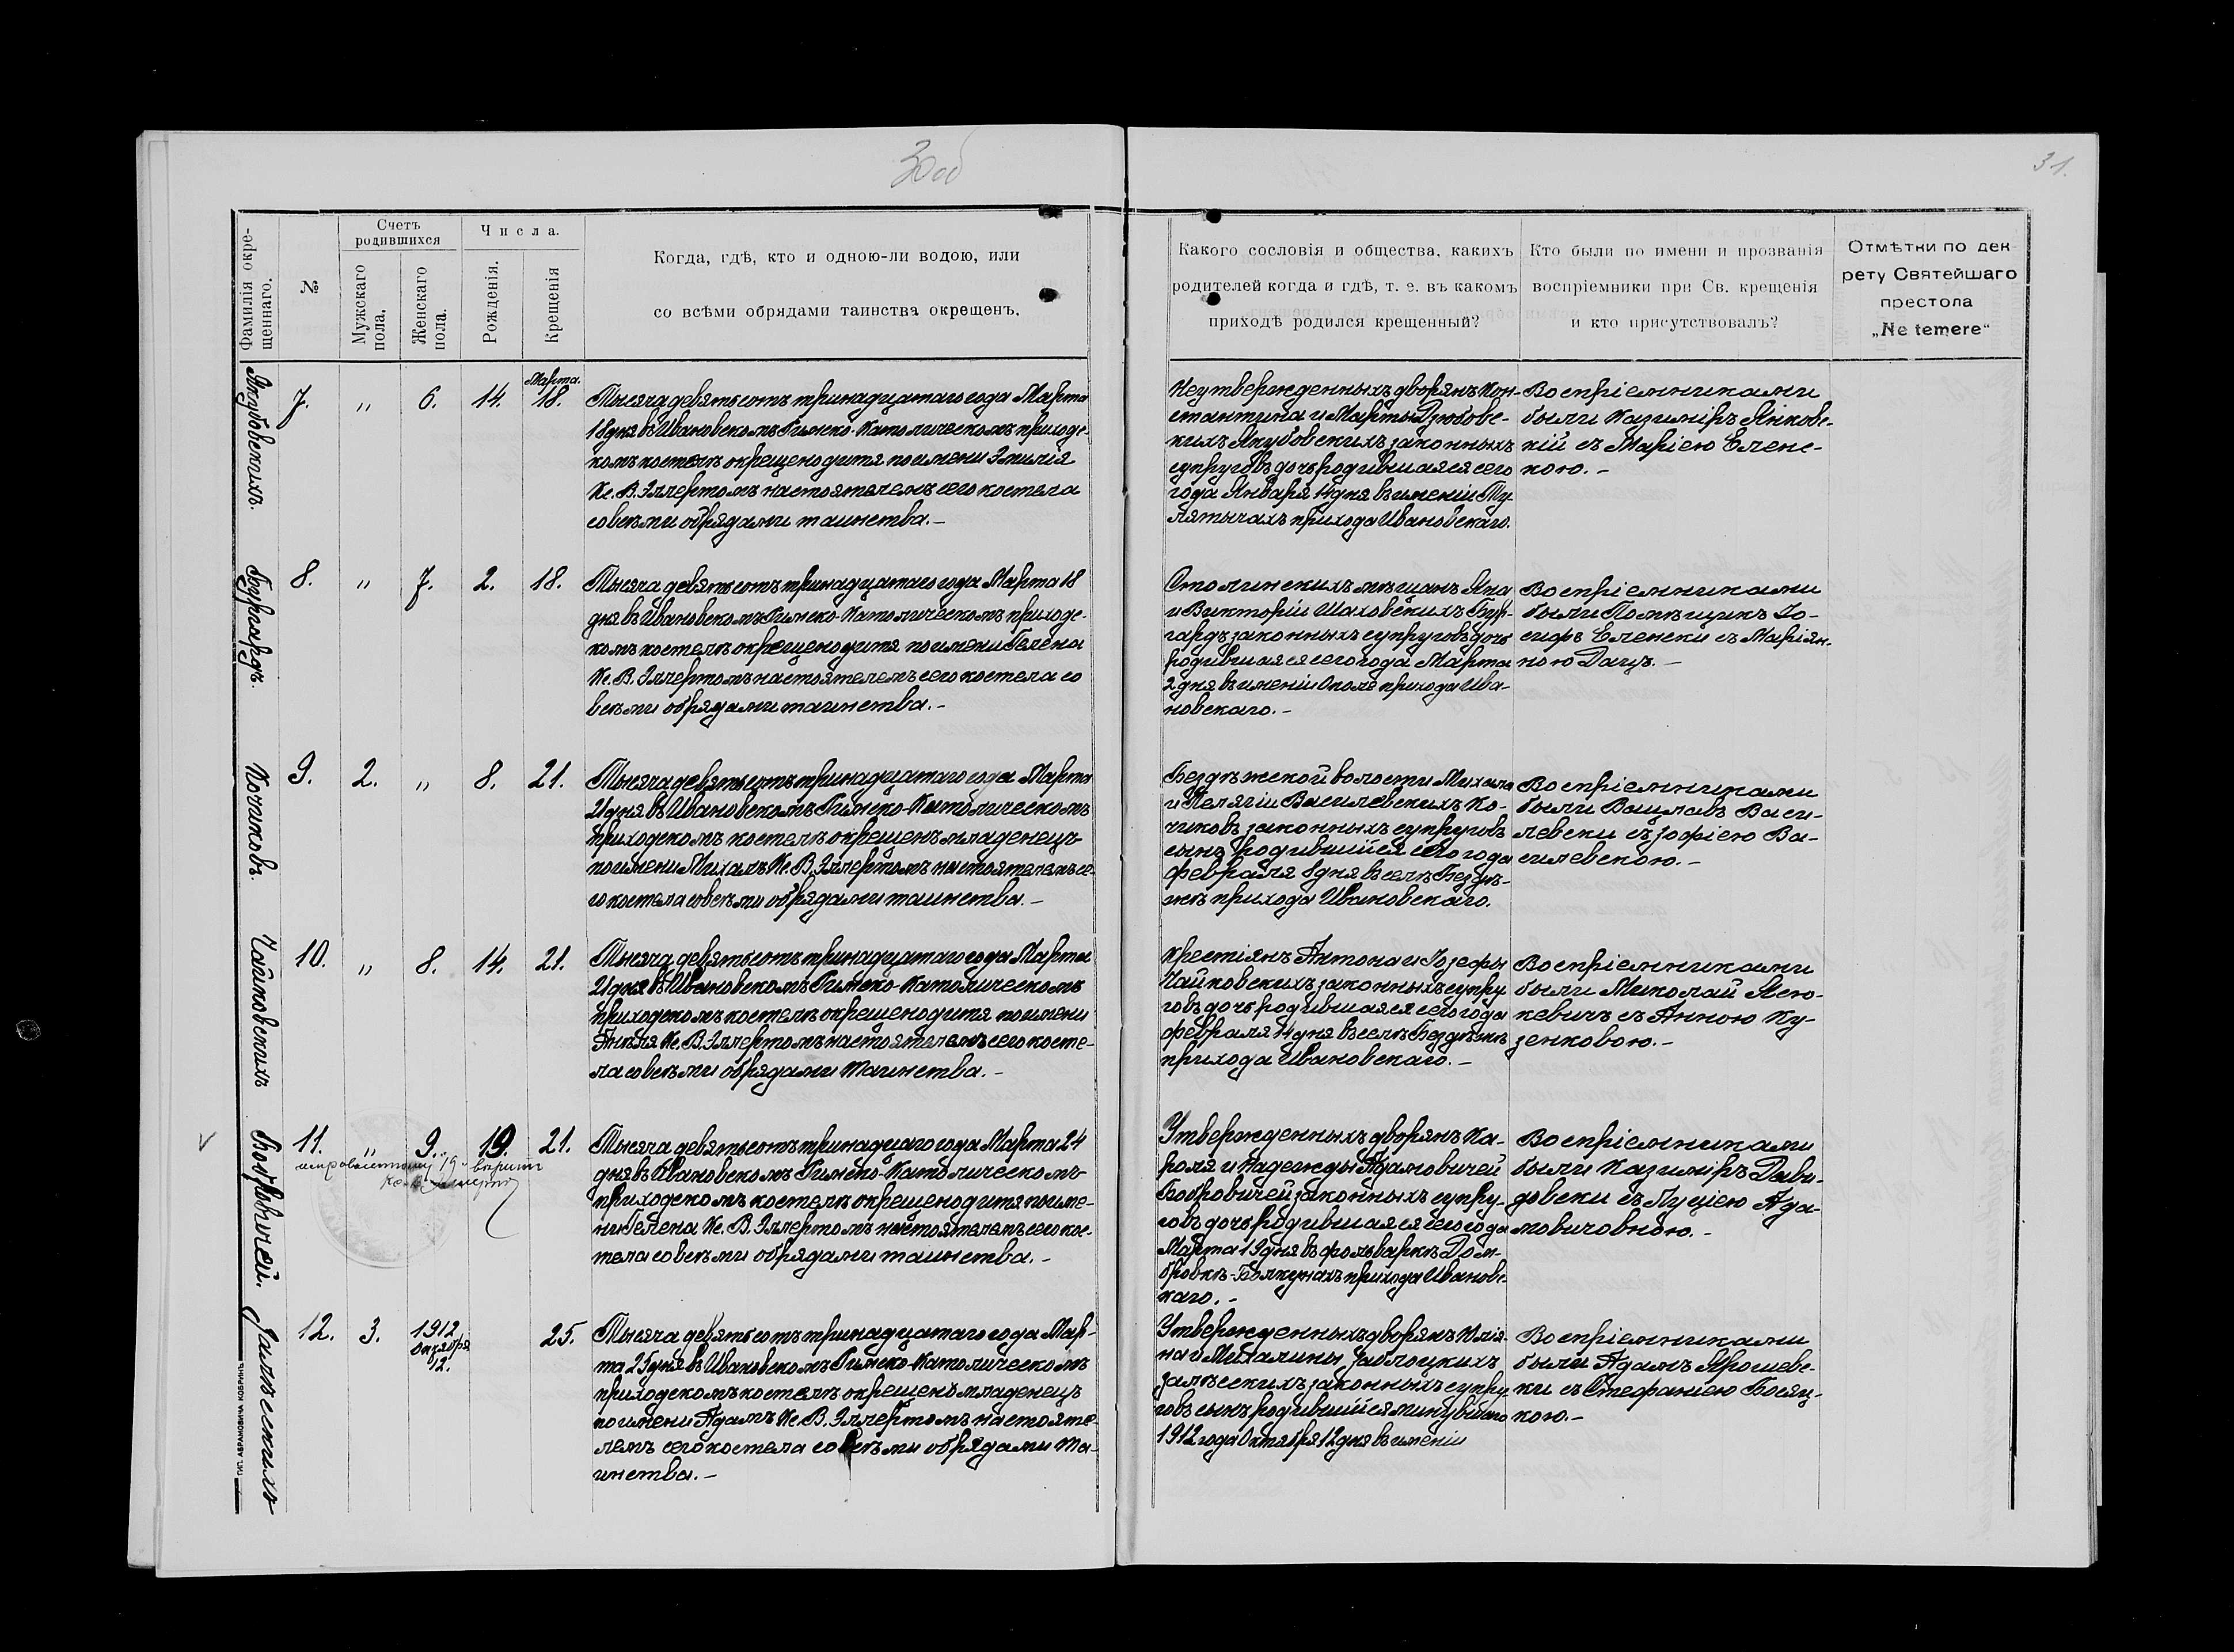 30об
31.
Фамилія окре-
щеннаго.
№
Счетъ
родившихся
Мужскаго
пола.
Женскаго
пола.
Числа.
Рожденія.
Крещенія
Когда, гдѣ, кто и одною-ли водою, или
со всѣми обрядами таинства окрещенъ.
Какого сословія и общества, какихъ
родителей когда и гдѣ, т. е. въ какомъ
приходѣ родился крещенный?
Кто были по имени и прозванія
воспріемники при Св. крещенія
и кто присутствовалъ?
Отмѣтки по дек
рету Святейшаго
престола
„Ne temere“
Якубовскихъ.
7.
"
6.
14.
Марта.
18.
Тысяча девятьсотъ тринадцатаго года Марта
18 дня въ Ивановскомъ Римско-Католическомъ приходс-
комъ костелѣ окрещено дитя по имени Эмилія
Кс. В. Эллертомъ настоятелемъ сего костела
со всѣми обрядами таинства.–
Неутвержденныхъ дворянъ Кон-
стантина и Марты Дзюбовс-
кихъ Якубовскихъ законныхъ
супруговъ дочь родившаяся сего
года Января 14 дня въ имѣніи Ту-
лятычахъ прихода Ивановскаго.
Воспріемниками
были Казиміръ Янковс-
кій съ Маріею Еленс-
кою.–
Бургардъ.
8.
"
7.
2.
18.
Тысяча девятьсотъ тринадцатаго года Марта 18
дня въ Ивановскомъ Римско-Католическомъ приходс-
комъ костелѣ окрещено дитя по имени Гелена
Кс. В. Эллертомъ настоятелемъ сего костела со
всѣми обрядами таинства.–
Столинскихъ мѣщанъ Яна
и Викторіи Шаховскихъ Бур-
гардъ законныхъ супруговъ дочь
родившаяся сего года Марта
2 дня въ имѣніи Ополе прихода Ива-
новскаго.–
Воспріемниками
были Помѣщикъ Іо-
сифъ Еленски съ Маріян-
ною Дацъ.–
Кочиковъ.
9.
2.
"
8.
21.
Тысяча девятьсотъ тринадцатаго года Марта
21 дня въ Ивановскомъ Римско-Католическомъ
приходскомъ костелѣ окрещенъ младенецъ
по имени Михалъ Кс. В. Эллертомъ настоятелемъ се-
го костела со всѣми обрядами таинства.–
Бездѣжской волости Михала
и Пелягіи Василевскихъ Ко-
чиковъ законныхъ супруговъ
сынъ родившійся сего года
Февраля 8 дня въ селѣ Бездѣ-
жѣ прихода Ивановскаго.
Воспріемниками
были Вацлавъ Васи-
левски съ Зофіею Ва-
силевскою.–
Чайковскихъ
10.
"
8.
14.
21.
Тысяча девятьсотъ тринадцатаго года Марта
21 дня въ Ивановскомъ Римско-Католическомъ
приходскомъ костелѣ окрещено дитя по имени
Анѣля Кс. В. Эллертомъ настоятелемъ сего косте-
ла со всѣми обрядами таинства.–
Крестіянъ Антона и Іозефы
Чайковскихъ законныхъ супру
говъ дочь родившаяся сего года
Февраля 14 дня въ селѣ Бездѣжѣ
прихода Ивановскаго.–
Воспріемниками
были Миколай Ясю-
кевичъ съ Анною Ку-
зенковою.–
Бобровичей.
11.
"
9.
19.
21.
исправленному „19“ вѣрить
Кс. В. Эллертъ
Тысяча девятьсотъ тринадцаго года Марта 24
дня въ Ивановскомъ Римско-Католическомъ
приходскомъ костелѣ окрещено дитя по име-
ни Гелена Кс. В. Эллертомъ настоятелемъ сего кос-
тела со всѣми обрядами таинства.–
Утвержденныхъ дворянъ Ка-
роля и Надежды Адамовичей
Бобровичей законныхъ супру-
говъ дочь родившаяся сего года
Марта 19 дня въ фольваркѣ Дом-
бровкѣ- прихода Ивановс-
каго.–
Воспріемниками
были Казиміръ Дави-
довски съ Луціею Ада-
мовичовною.–
Залѣскихъ
12.
3.
1912
Октября
12.
25.
Тысяча девятьсотъ тринадцатаго года Мар-
та 25 дня въ Ивановскомъ Римско-Католическомъ
приходскомъ костелѣ окрещенъ младенецъ
по имени Адамъ Кс. В. Эллертомъ настояте-
лемъ сего костела со всѣми обрядами та-
инства.–
Утвержденныхъ дворянъ Юлія-
на и Михалины Заблоцкихъ
Залѣскихъ законныхъ супру
говъ сынъ родившійся минувшаго
1912 года Октября 12 дня въ имѣніи
Воспріемниками
были Адамъ Ярошевс-
ки съ Стефаніею Босяц-
кою.–
ТИП. АБРАМОВИЧА КОБРИНЪ